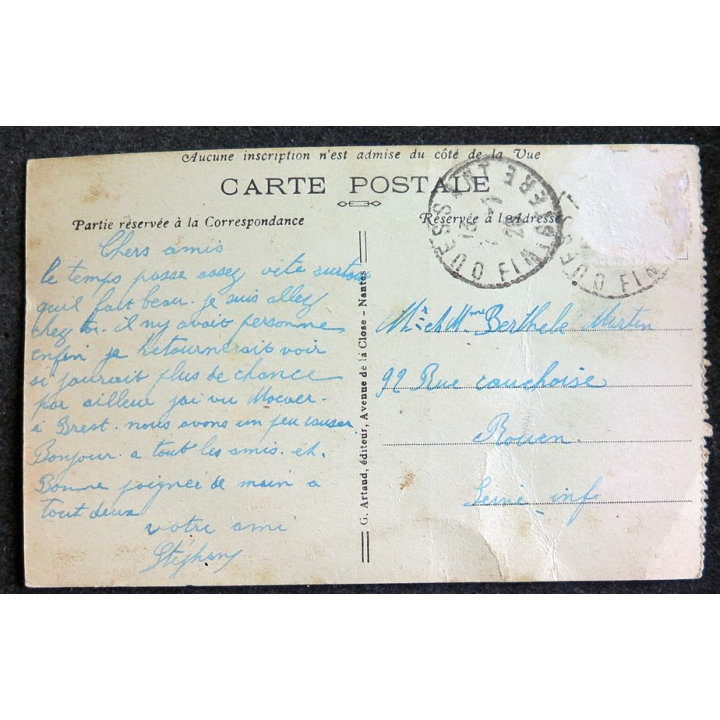 Aucune inscription n'est admise du côté de la Vue
CARTE POSTALE
Partie réservée à la Correspondance
Réservée à l'Adresse
Chers amis
le temps passe assez vite surtou
quil fait beau. je suis allez
chez toi. il ny avait personne
enfin je retournerait voir
si jaurait plus de chance
par ailleur jai vu
à Brest. nous avons un peu causer
Bonjour. a tout les amis. et.
Bonne poignée de main a
tout deux
votre ami
Stéphany
G. Artaud, éditeur, Avenue de la Close - Nantes
Mr et Mme Berthelé Martin
92 Rue cauchoise
Rouen.
Seine_inf
OUESSANT
FINISTERE